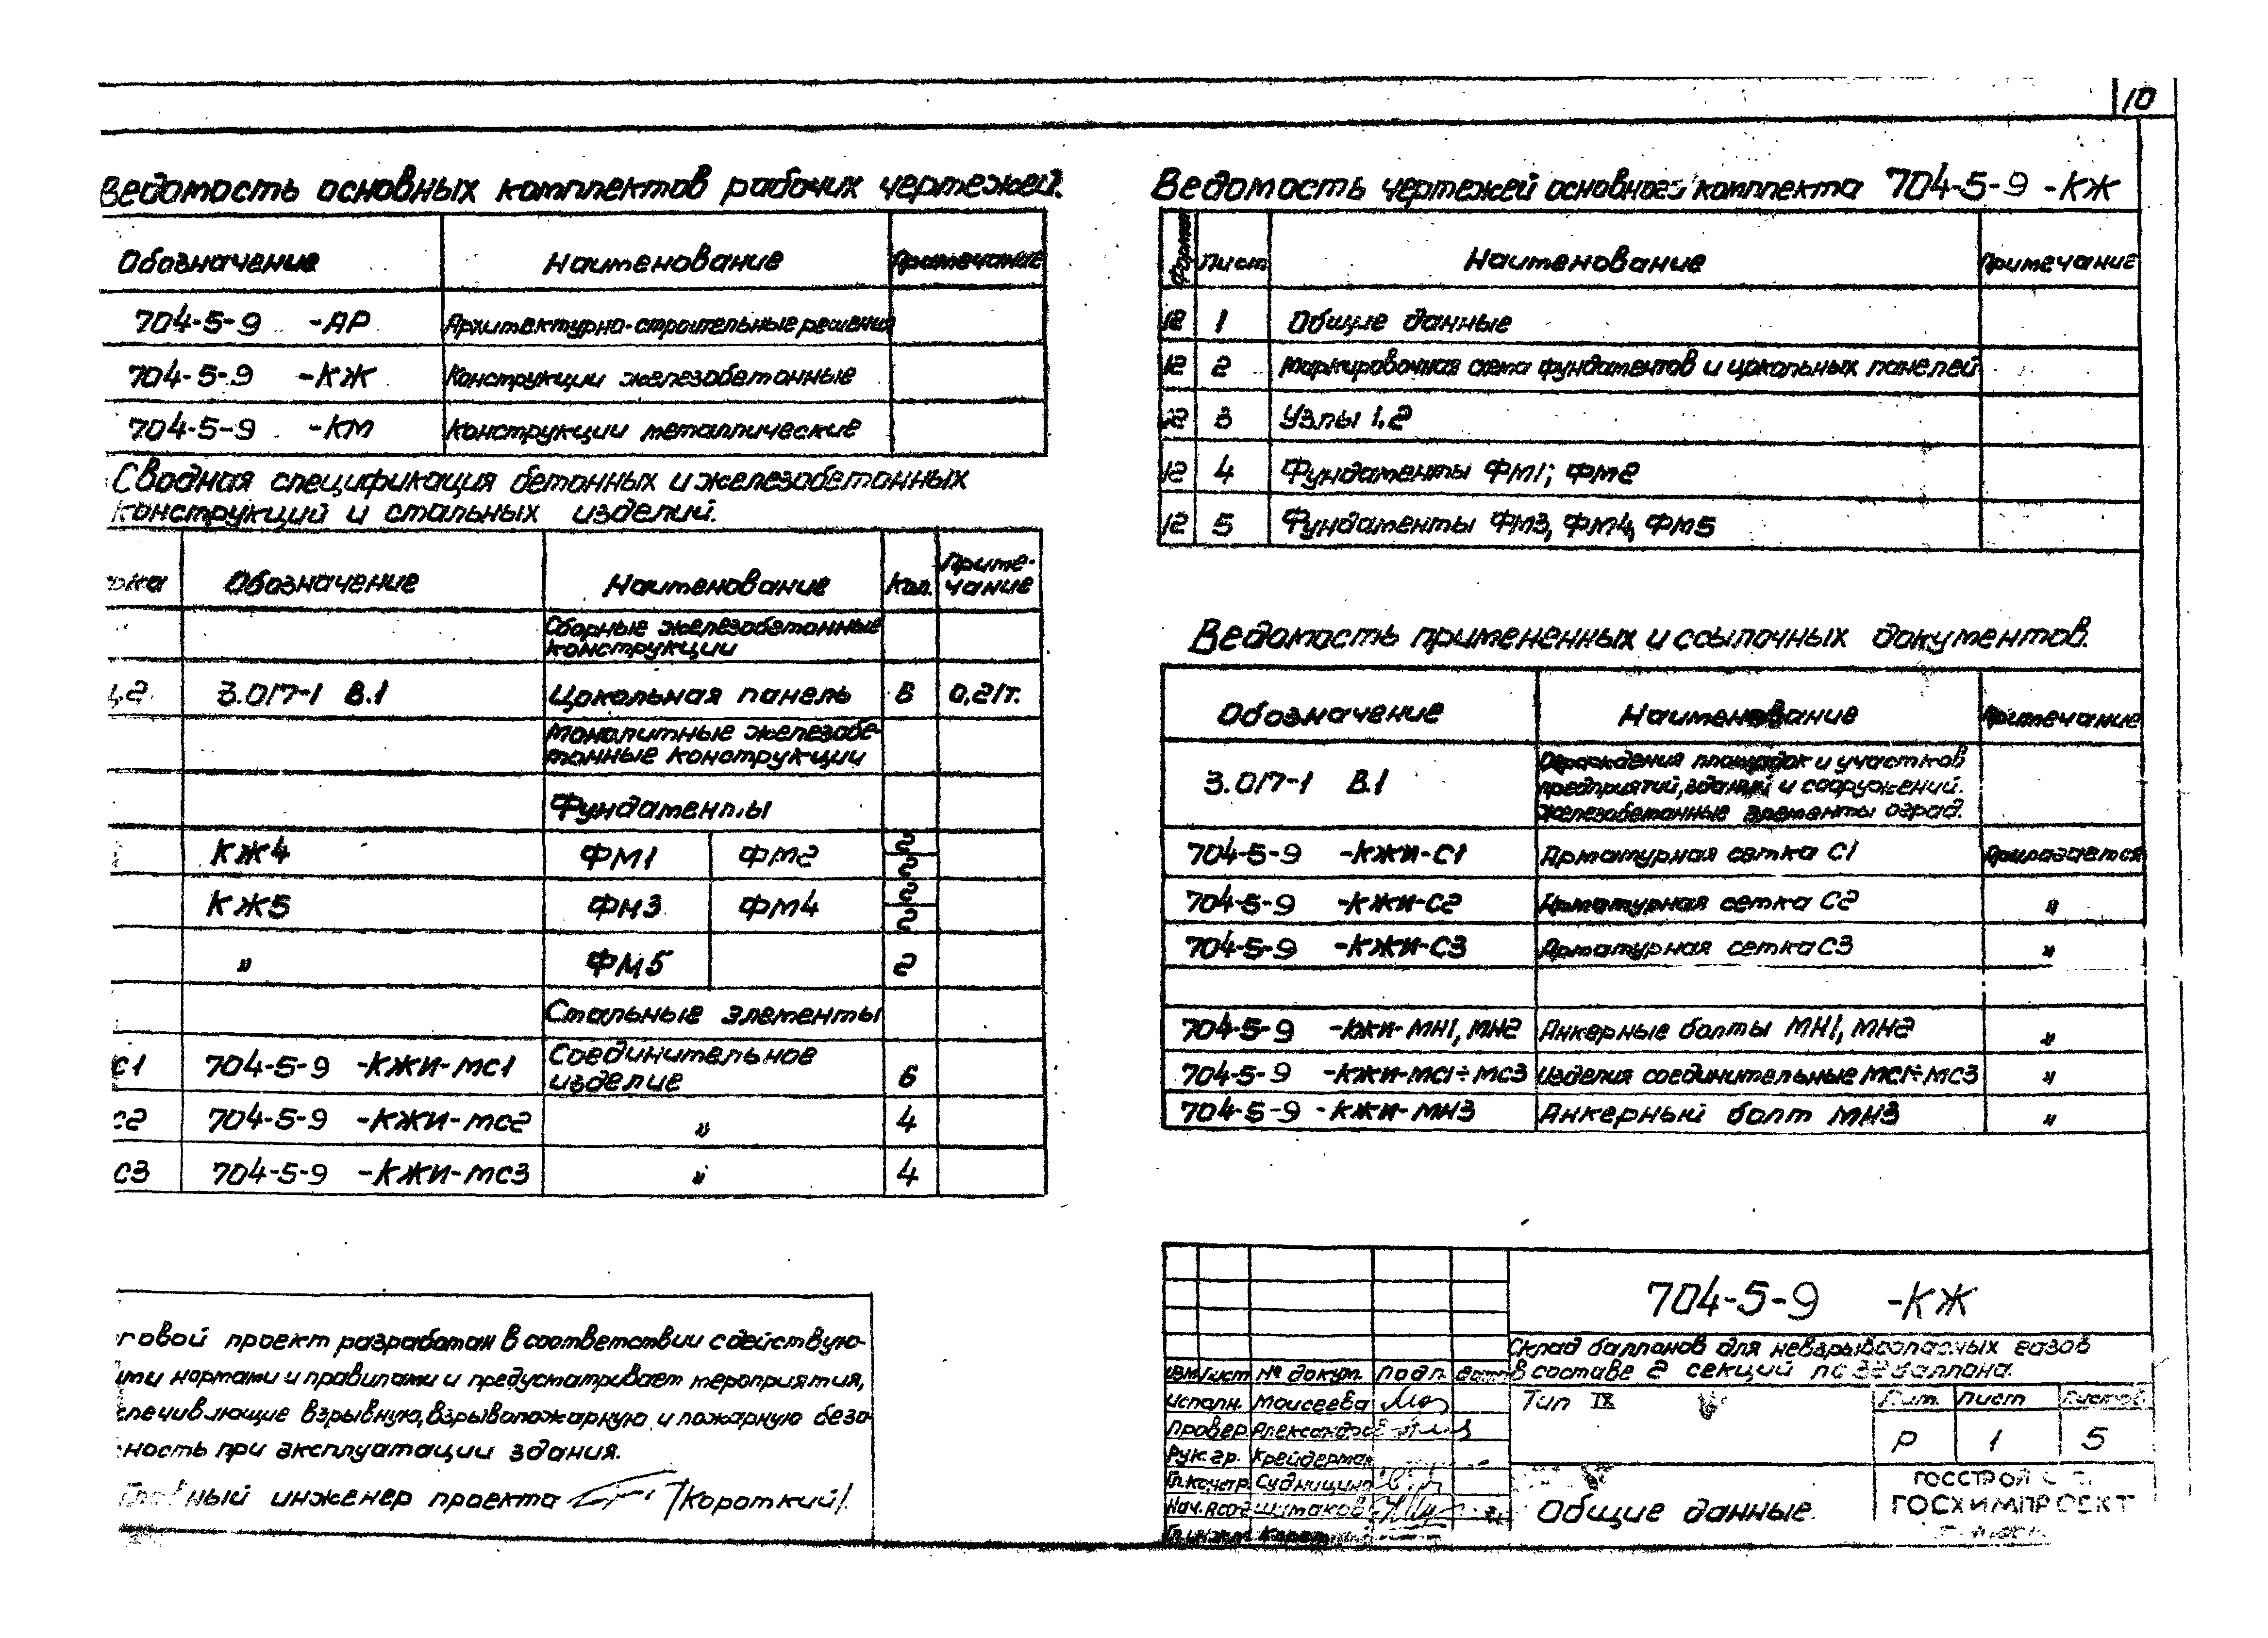 10
Ведомость основных комплектов рабочих чертежей.
Обозначение Наименование Примечание
704-5-9 -АР Архитектурно-строительные решения
704-5-9 -КЖ Конструкции железобетонные
704-5-9 -КМ Конструкции металлические
Сводная спецификация бетонных и железобетонных
конструкций и стальных изделий.
Обозначение Наименование Кол. Приме-
чание
Сборные железобетонные
конструкции
3.017-1 В.1 Цокольная панель 8 0,21т.
Монолитные железобе-
тонные конструкции
Фундаменты
КЖ4 ФМ1 ФМ2 2 2
КЖ5 ФМ3 ФМ4 2 2
" ФМ5 2
Стальные элементы
с1 704-5-9 -КЖИ-МС1 Соединительное
изделие 6
с2 704-5-9 -КЖИ-МС2 " 4
с3 704-5-9 -КЖИ-МС3 " 4
говой проект разработан в соответствии с действую-
ими нормами и правилами и предусматривает мероприятия,
спечивающие взрывную, взрывопожарную и пожарную безо-
ность при эксплуатации здания.
Главный инженер проекта /Короткий/.
Ведомость чертежей основного комплекта 704-5-9 -КЖ
Формат Лист Наименование Примечание
12 1 Общие данные
12 2 Маркировочная схема фундаментов и цокольных панелей
12 3 Узлы 1,2
12 4 Фундаменты ФМ1; ФМ2
12 5 Фундаменты ФМ3, ФМ4, ФМ5
Ведомость примененных и ссылочных документов.
Обозначение Наименование Примечание
3.017-1 В.1 Ограждения площадок и участков
предприятий, зданий и сооружений.
Железобетонные элементы оград.
704-5-9 -КЖИ-С1 Арматурная сетка С1 Прилагается
704-5-9 -КЖИ-С2 Арматурная сетка С2 "
704-5-9 -КЖИ-С3 Арматурная сетка С3 "
704-5-9 -КЖИ-МН1, МН2 Анкерные болты МН1, МН2 "
704-5-9 -КЖИ-МС1÷МС3 Изделия соединительные МС1÷МС3 "
704-5-9 -КЖИ-МН3 Анкерный болт МН3 "
704-5-9 -КЖ
Склад баллонов для невзрывоопасных газов
в составе 2 секций по 32 баллона.
Изм. Лист № докум. Подп. Дата
Исполн. Моисеева
Провер. Александро
Рук. гр. Крейдерман
Гл.констр. Судницина
Нач. АСО-2 Шумаков
Гл.инж.пр. Короткий
Тип IX
Лит. Лист Листов
Р 1 5
Общие данные
ГОССТРОЙ
ГОСХИМПРОЕКТ